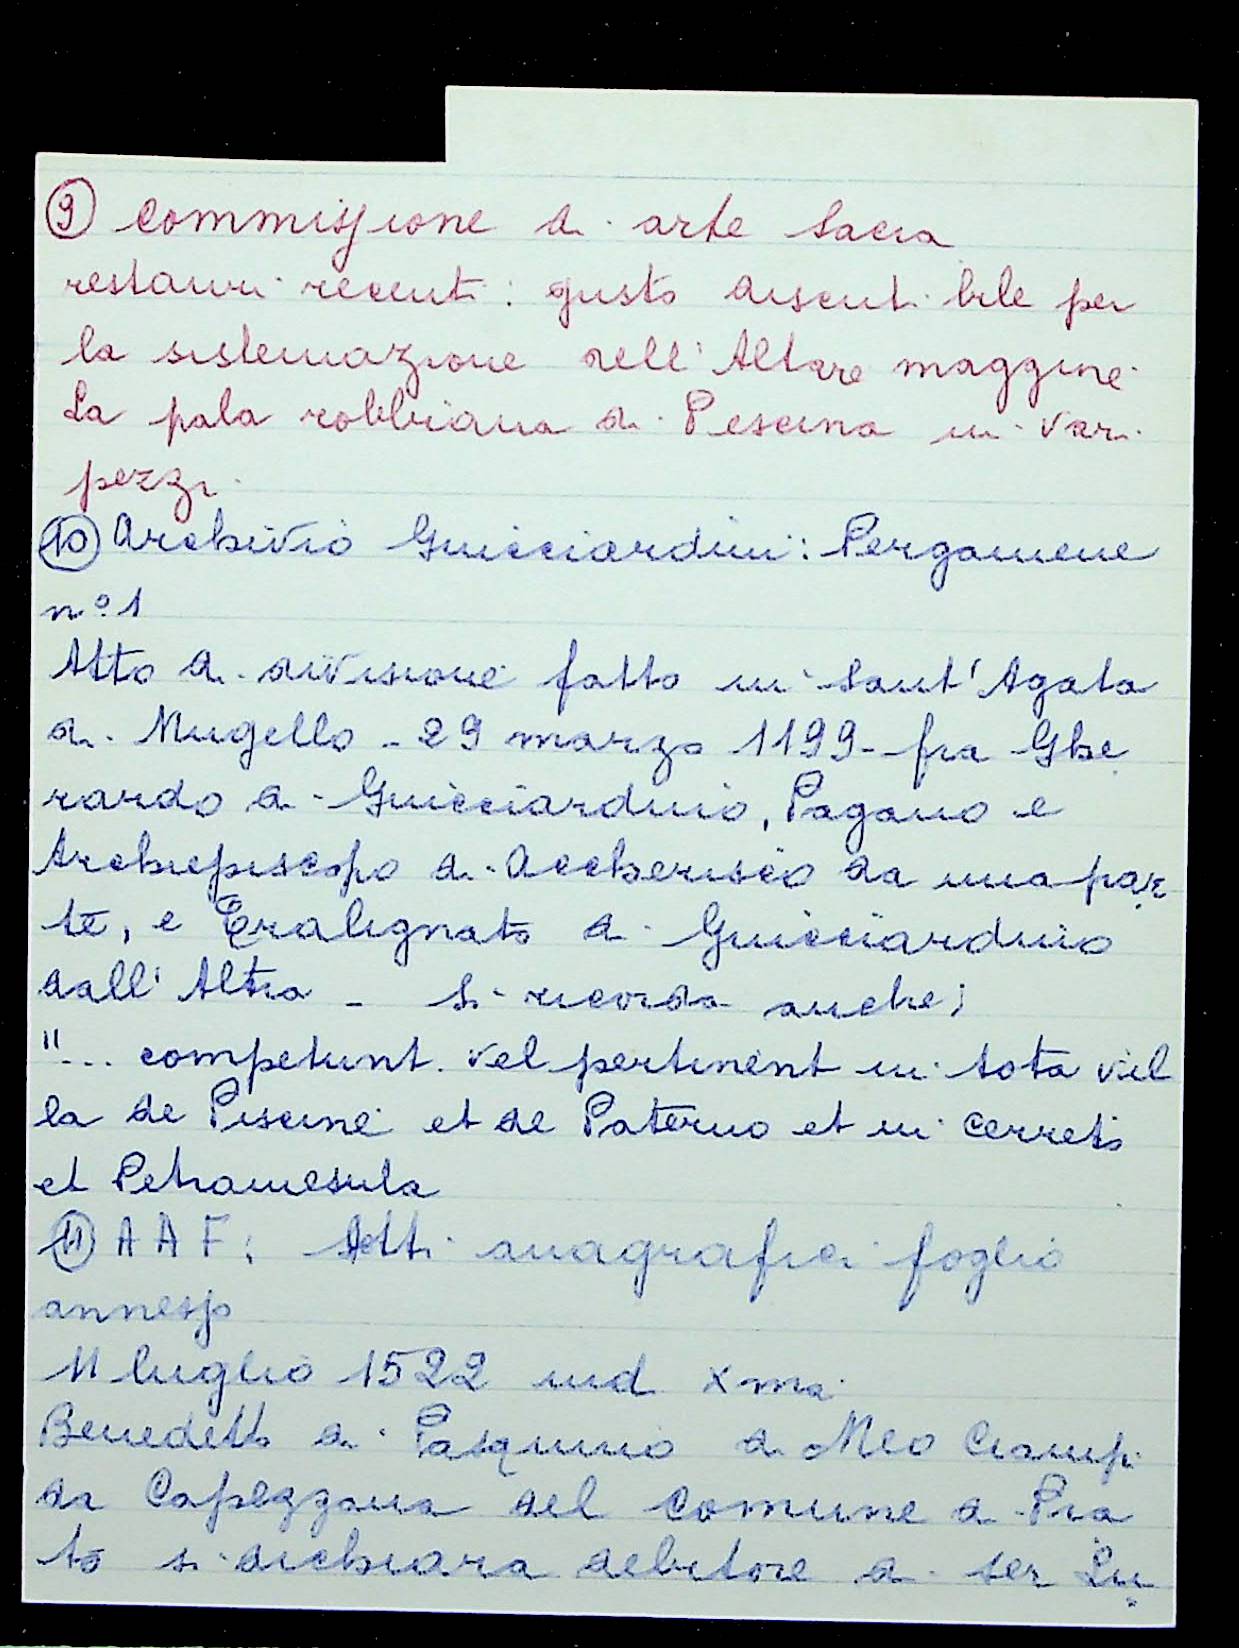 9 Commissione di arte sacra
restauri recenti: gusto discutibile per
la sistemazione dell'Altare maggiore
La pala robbiana di Pescina in vari
pezzi.
10 Archivio Guicciardini: Pergamene
n° 1
Atto di divisione fatto in Sant'Agata
di Mugello - 29 marzo 1199 - fra Ghe
rardo di Guicciardino, Pagano e
Archiepiscopo di Accherisio da una par
te, e Tralignato di Guicciardino
dall'Altra - Si ricorda anche;
"... competunt vel pertinent in tota vil
la de Piscine et de Paterno et in Cerreto
et Petramesula
11 A A F: Atti anagrafici foglio
annesso
11 luglio 1522 ind Xma
Benedetto di Pasquino di Meo Ciampi
da Capezzana del Comune di Pra
to si dichiara debitore di ser Lu